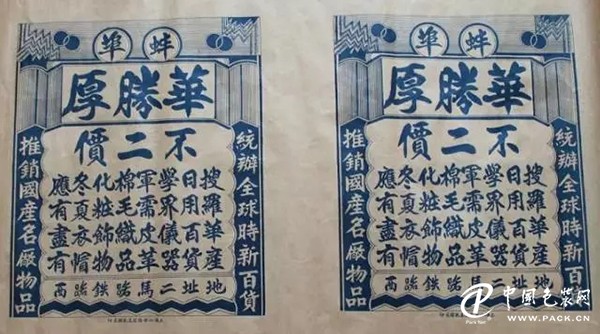 蚌埠
華勝厚
不二價
統辦全球時新百貨
搜羅華產
日用百貨
學界儀器
軍需皮革
棉毛織品
化粧飾物
冬夏衣帽
應有盡有
推銷國產名廠物品
地址二馬路鐵路西
蚌埠
華勝厚
不二價
統辦全球時新百貨
搜羅華產
日用百貨
學界儀器
軍需皮革
棉毛織品
化粧飾物
冬夏衣帽
應有盡有
推銷國產名廠物品
地址二馬路鐵路西
中國包装网
WWW.PACK.CN